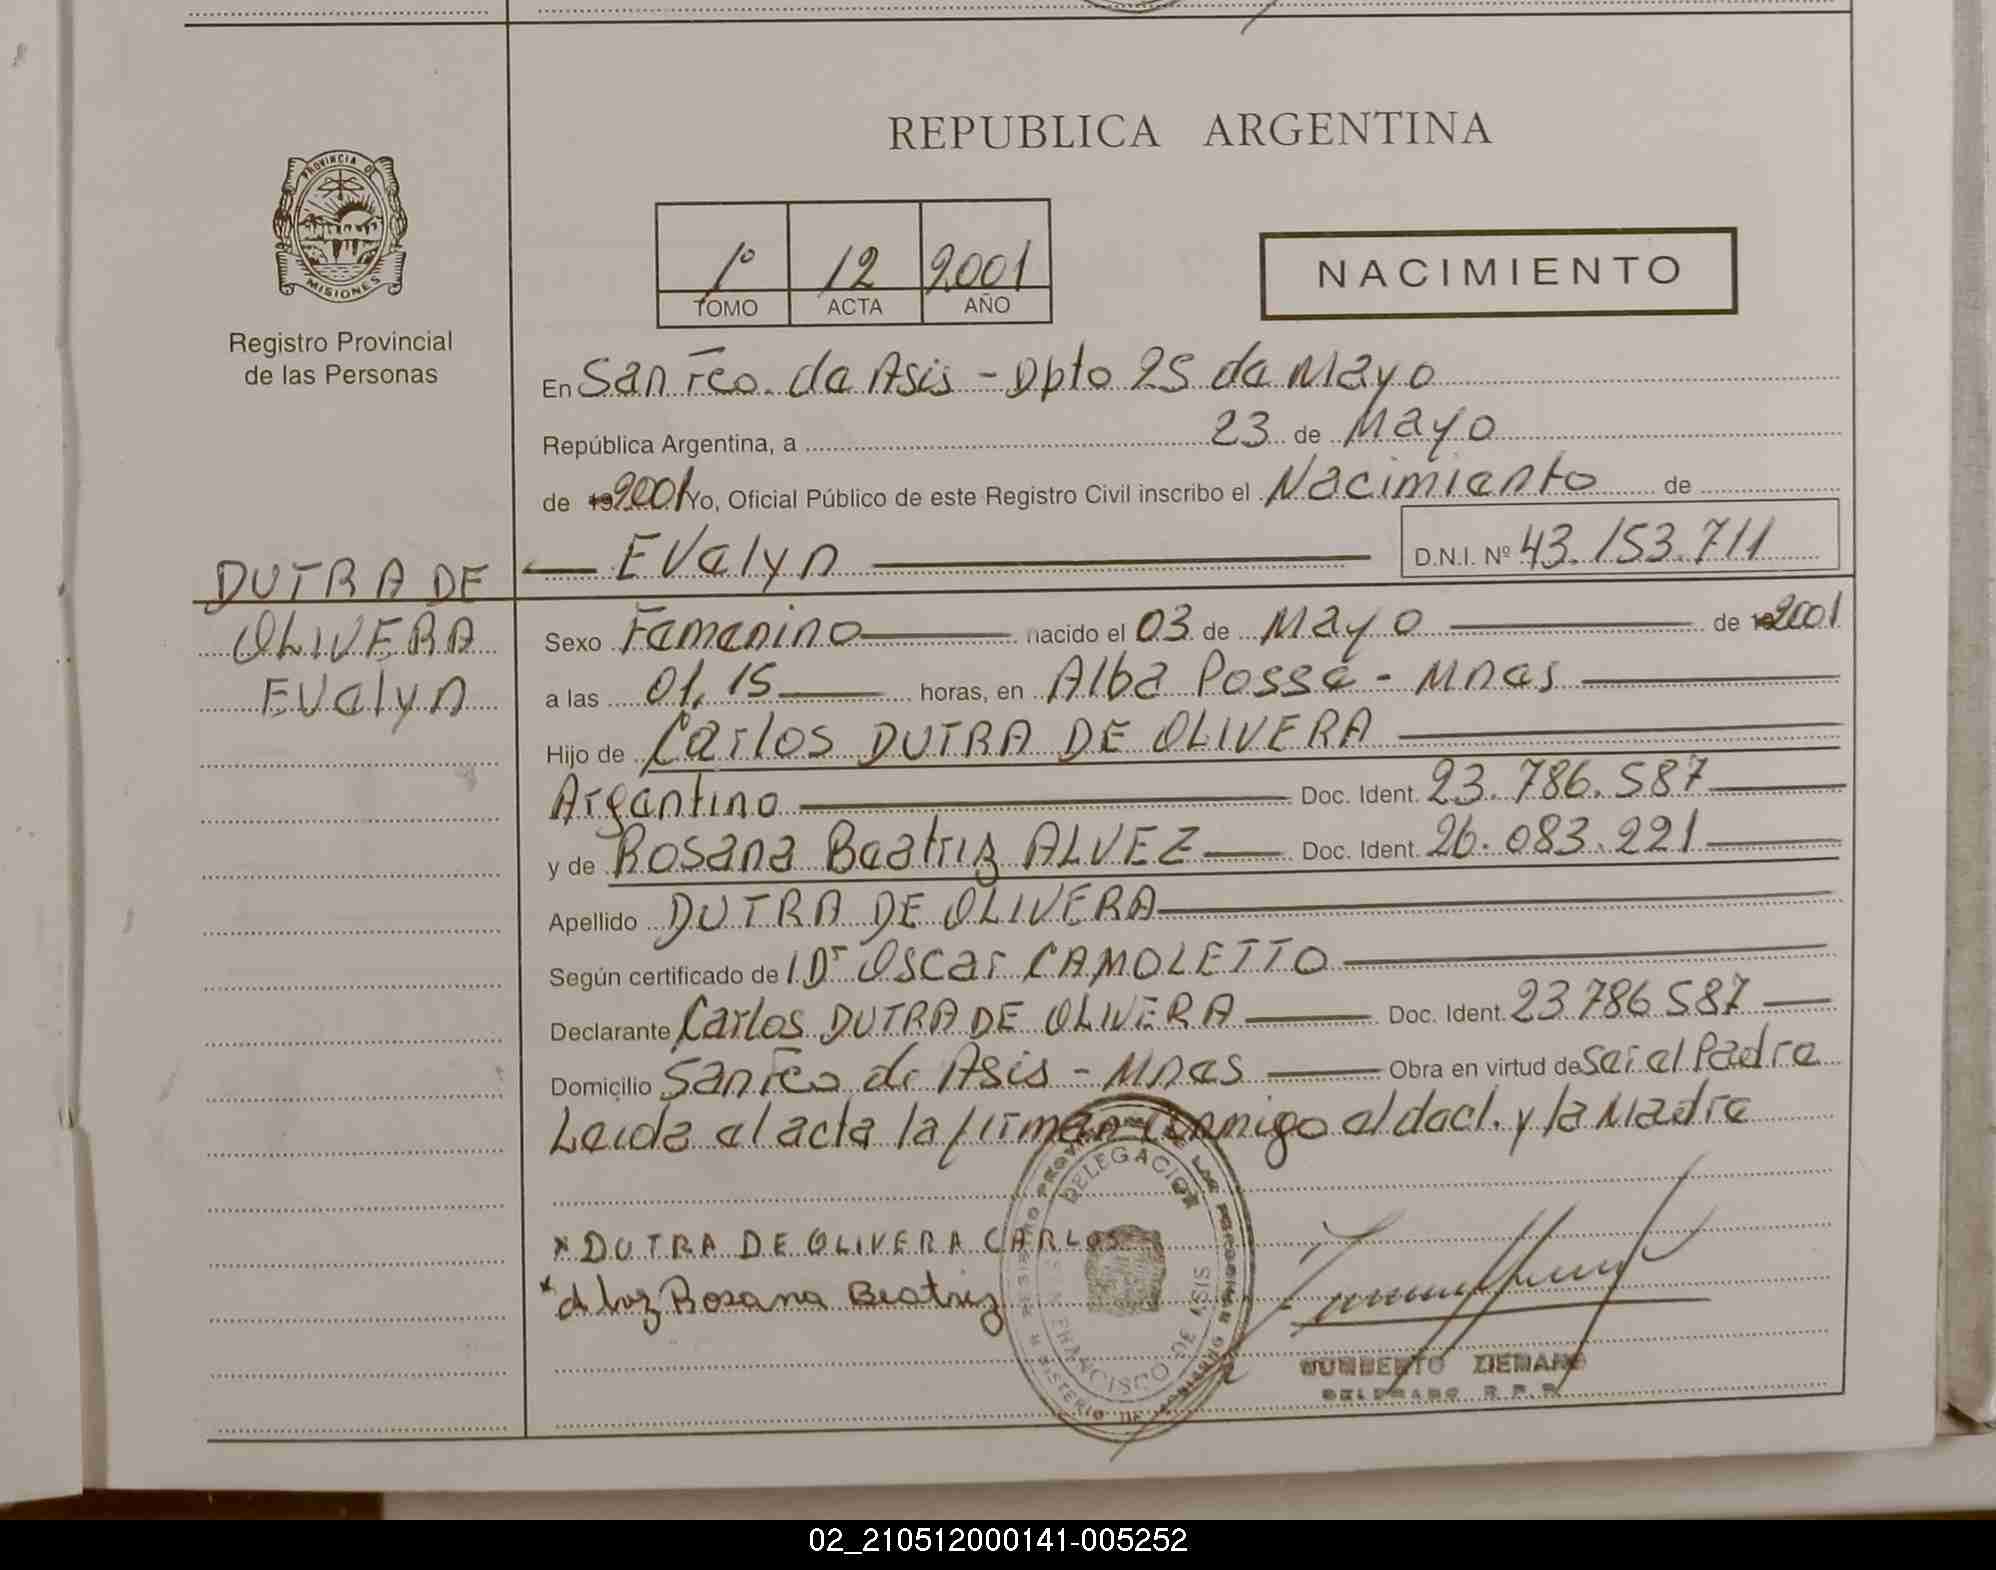 REPUBLICA ARGENTINA
PROVINCIA DE
MISIONES
Registro Provincial
de las Personas
1º 12 2001
TOMO ACTA AÑO
NACIMIENTO
En San Fco. de Asis - Dpto 25 de Mayo
República Argentina, a 23 de Mayo
de 19 2001 Yo, Oficial Público de este Registro Civil inscribo el Nacimiento de
Evelyn D.N.I. Nº 43.153.711
DUTRA DE
OLIVERA
Evelyn
Sexo Femenino nacido el 03 de Mayo de 19 2001
a las 01,15 horas, en Alba Posse - Mnes
Hijo de Carlos DUTRA DE OLIVERA
Argentino Doc. Ident. 23.786.587
y de Rosana Beatriz ALVEZ Doc. Ident. 26.083.221
Apellido DUTRA DE OLIVERA
Según certificado de Dr Oscar CAMOLETTO
Declarante Carlos DUTRA DE OLIVERA Doc. Ident. 23.786.587
Domicilio San Fco de Asis - Mnes Obra en virtud de ser el Padre
Leida el acta la firman conmigo el decl. y la Madre
x DUTRA DE OLIVERA CARLOS
Rosana Beatriz
DELEGACION
FRANCISCO DE ASIS
02_210512000141-005252